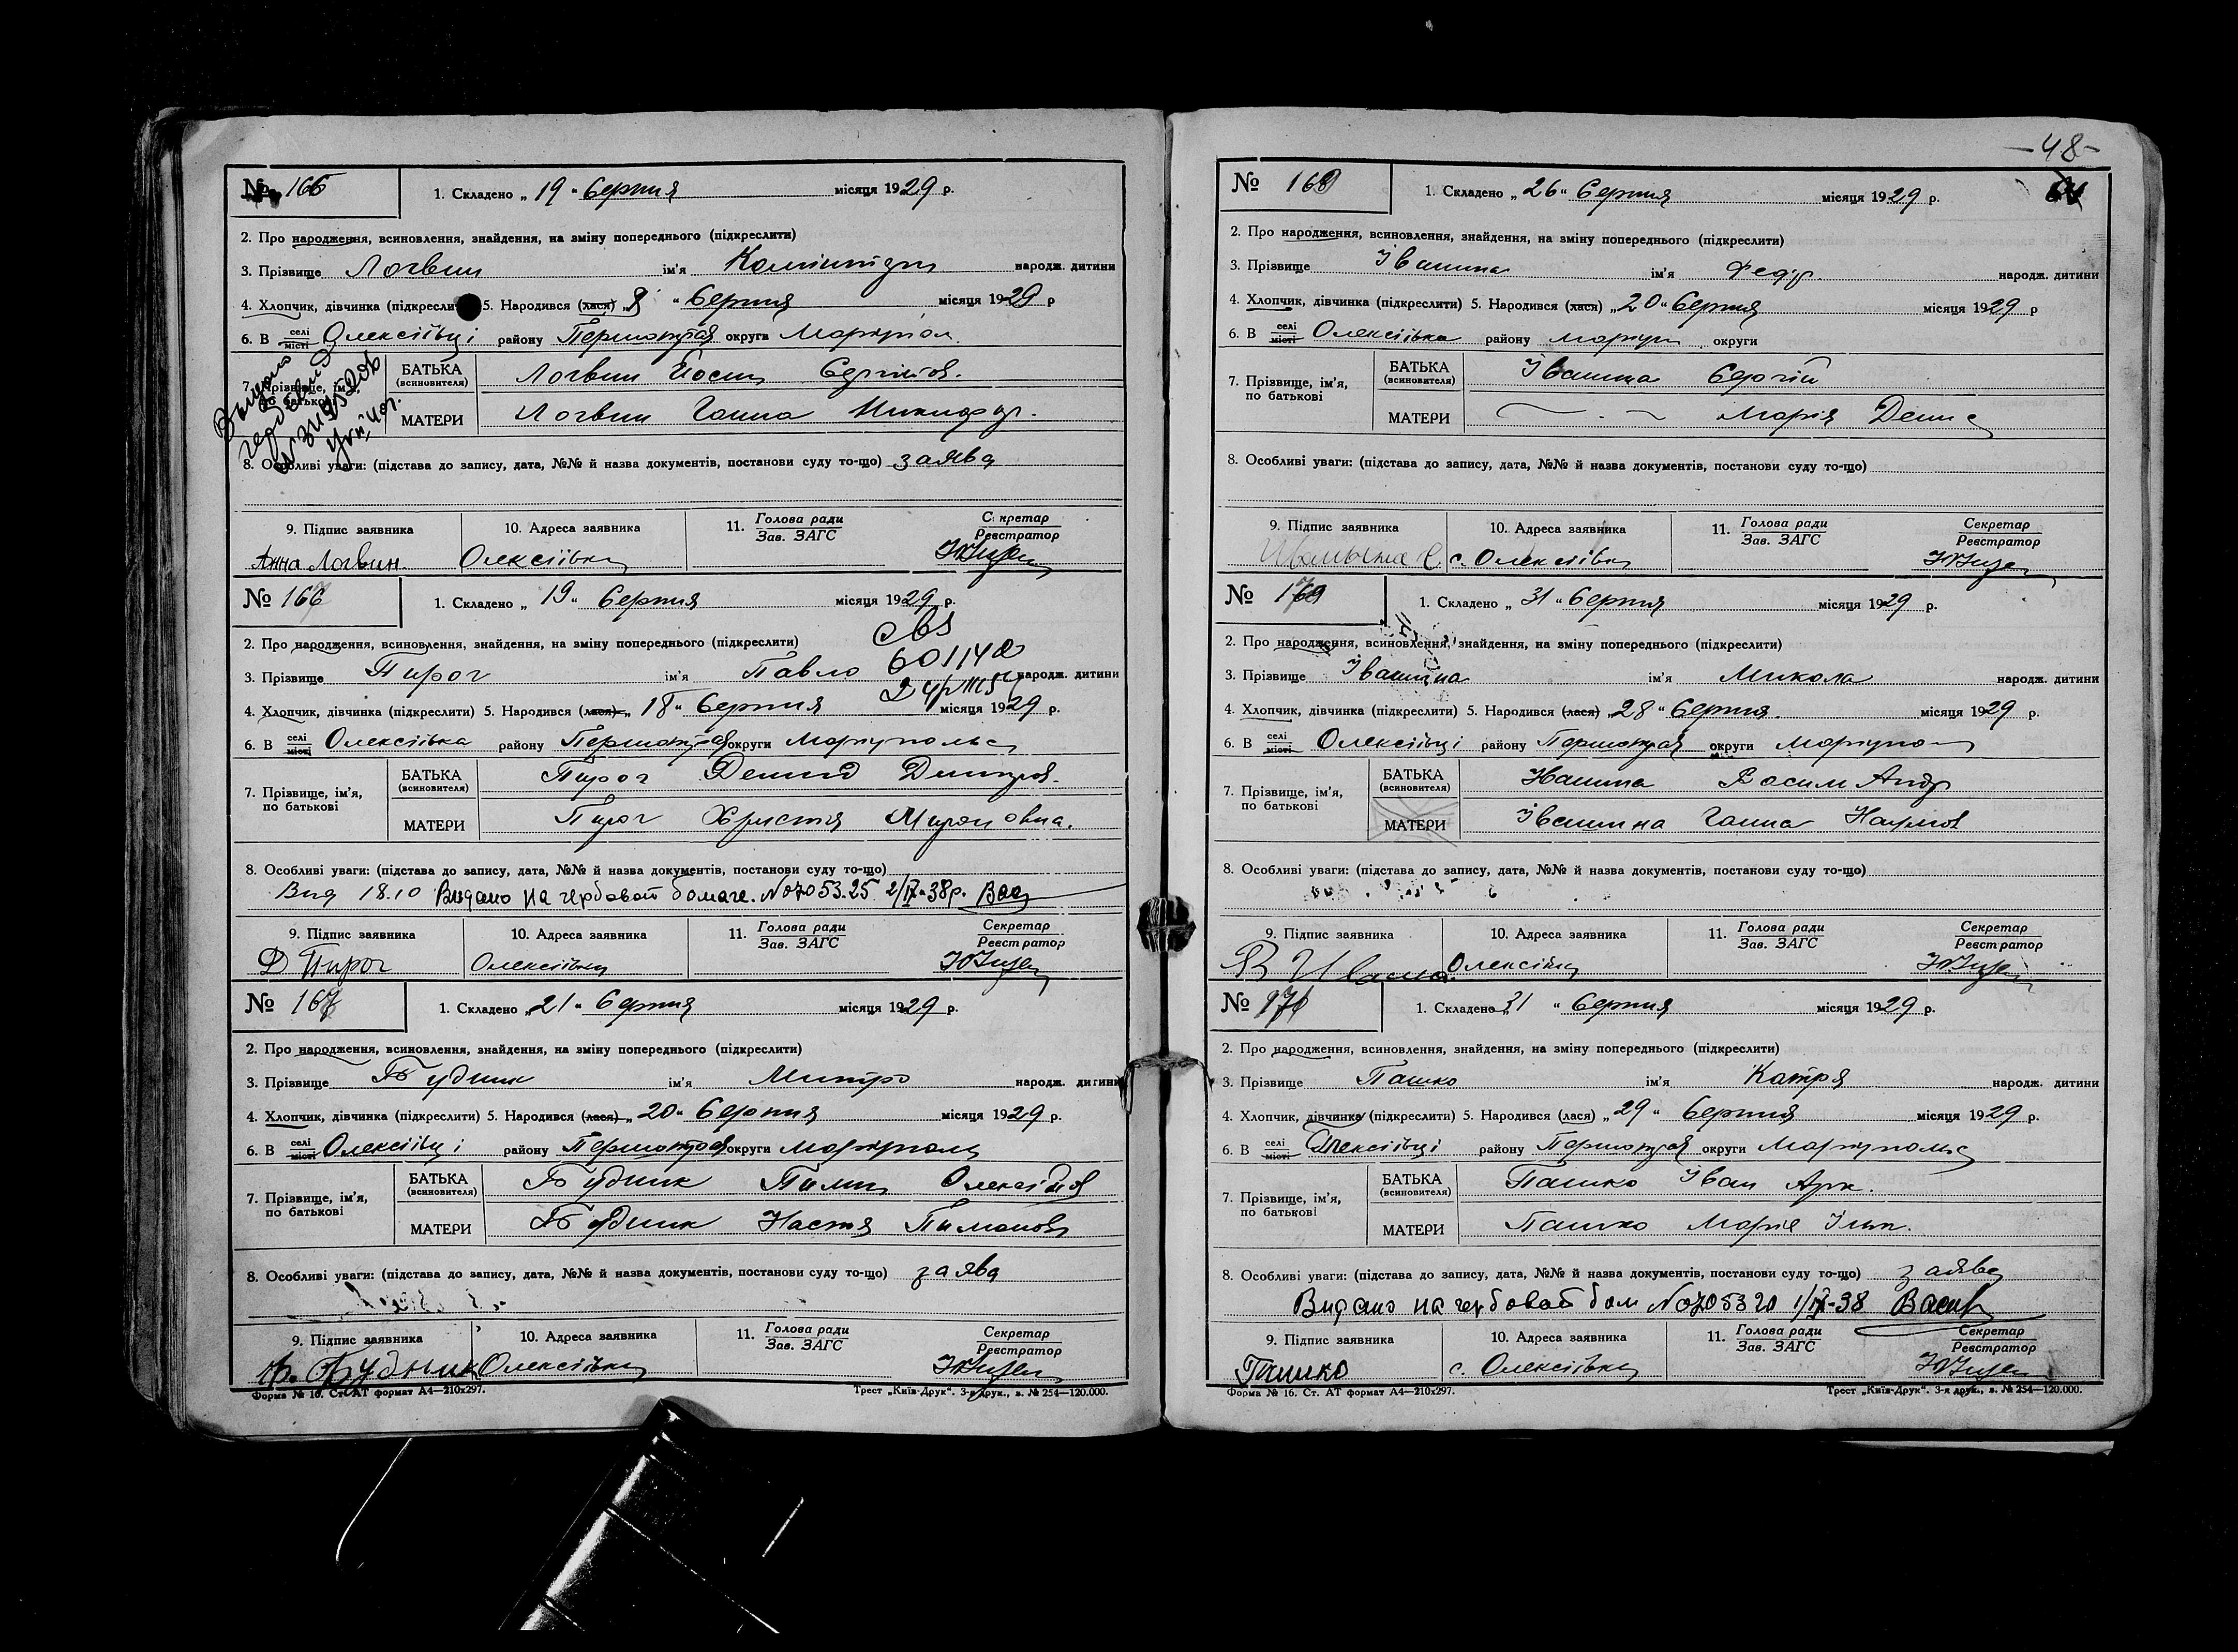 № 166
1. Складено „ 19 " Серпня місяця 1929 р.
2. Про народження, всиновлення, знайдення, на зміну попереднього (підкреслити)
3. Прізвище Логвин ім'я народж. дитини
4. Хлопчик, дівчинка (підкресли 5. Народився (лася) „ 8 " Серпня місяця 1929 р
6. В селі місті Олексіївці району округи Маріупол
7. Прізвище, ім'я, по батькові
БАТЬКА (всиновителя) Логвин Йосип
МАТЕРИ Логвин Ганна
8. Особливі уваги: (підстава до запису, дата, №№ й назва документів, постанови суду то-що) заява
9. Підпис заявника 10. Адреса заявника 11. Голова ради Зав. ЗАГС Секретар Реєстратор
Анна Логвин. Олексіївка
№ 166
1. Складено „ 19 " Серпня місяця 1929 р.
2. Про народження, всиновлення, знайдення, на зміну попереднього (підкреслити)
3. Прізвище Пирог ім'я Павло народж. дитини
4. Хлопчик, дівчинка (підкреслити) 5. Народився (лася) „ 18 " Серпня місяця 1929 р.
6. В селі місті Олексіївка району округи Маріупольс
7. Прізвище, ім'я, по батькові
БАТЬКА (всиновителя) Пирог Демид Дмитров.
МАТЕРИ Пирог Христя Мироновна.
8. Особливі уваги: (підстава до запису, дата, №№ й назва документів, постанови суду то-що)
Вид 18.10 Видано на гербовой бомаге. №07053.25 2/IX-38р.
9. Підпис заявника 10. Адреса заявника 11. Голова ради Зав. ЗАГС Секретар Реєстратор
Д Пирог Олексіївка
№ 167
1. Складено „ 21 " Серпня місяця 1929 р.
2. Про народження, всиновлення, знайдення, на зміну попереднього (підкреслити)
3. Прізвище Будник ім'я Митро народж. дитини
4. Хлопчик, дівчинка (підкреслити) 5. Народився (лася) „ 20 " Серпня місяця 1929 р.
6. В селі місті Олексіївці району округи Маріуполь
7. Прізвище, ім'я, по батькові
БАТЬКА (всиновителя) Будник Пилип Олексійов
МАТЕРИ Будник Настя
8. Особливі уваги: (підстава до запису, дата, №№ й назва документів, постанови суду то-що) заява
9. Підпис заявника 10. Адреса заявника 11. Голова ради Зав. ЗАГС Секретар Реєстратор
Будник Олексіївка
Форма № 16. Ст. АТ формат А4—210х297. Трест „Київ-Друк". 3-я друк., з. № 254—120.000.
-48-
№ 168
1. Складено „ 26 " Серпня місяця 1929 р.
2. Про народження, всиновлення, знайдення, на зміну попереднього (підкреслити)
3. Прізвище Івашина ім'я Федір народж. дитини
4. Хлопчик, дівчинка (підкреслити) 5. Народився (лася) „ 20 " Серпня місяця 1929 р
6. В селі місті Олексіївка району Маріуп округи
7. Прізвище, ім'я, по батькові
БАТЬКА (всиновителя) Івашина Сергій
МАТЕРИ Марія Денис
8. Особливі уваги: (підстава до запису, дата, №№ й назва документів, постанови суду то-що)
9. Підпис заявника 10. Адреса заявника 11. Голова ради Зав. ЗАГС Секретар Реєстратор
с. Олексіївка
№ 169
1. Складено „ 31 " Серпня місяця 1929 р.
2. Про народження, всиновлення, знайдення, на зміну попереднього (підкреслити)
3. Прізвище Івашина ім'я Микола народж. дитини
4. Хлопчик, дівчинка (підкреслити) 5. Народився (лася) „ 28 " Серпня. місяця 1929 р.
6. В селі місті Олексіївці району округи Маріупо
7. Прізвище, ім'я, по батькові
БАТЬКА (всиновителя) Івашина Васил Андр
МАТЕРИ Івашина Ганна Наумов
8. Особливі уваги: (підстава до запису, дата, №№ й назва документів, постанови суду то-що)
9. Підпис заявника 10. Адреса заявника 11. Голова ради Зав. ЗАГС Секретар Реєстратор
Олексіївка
№ 170
1. Складено „ 31 " Серпня місяця 1929 р.
2. Про народження, всиновлення, знайдення, на зміну попереднього (підкреслити)
3. Прізвище Пашко ім'я Катря народж. дитини
4. Хлопчик, дівчинка (підкреслити) 5. Народився (лася) „ 29 " Серпня місяця 1929 р.
6. В селі місті Олексіївці району округи Маріупольс
7. Прізвище, ім'я, по батькові
БАТЬКА (всиновителя) Пашко Іван Арх.
МАТЕРИ Пашко Марія Ільн.
8. Особливі уваги: (підстава до запису, дата, №№ й назва документів, постанови суду то-що) заява
Видано на гербовой бом №0705320 1/IX-38
9. Підпис заявника 10. Адреса заявника 11. Голова ради Зав. ЗАГС Секретар Реєстратор
Пашко с. Олексіївка
Форма № 16. Ст. АТ формат А4—210х297. Трест „Київ-Друк". 3-я друк., з. № 254—120.000.